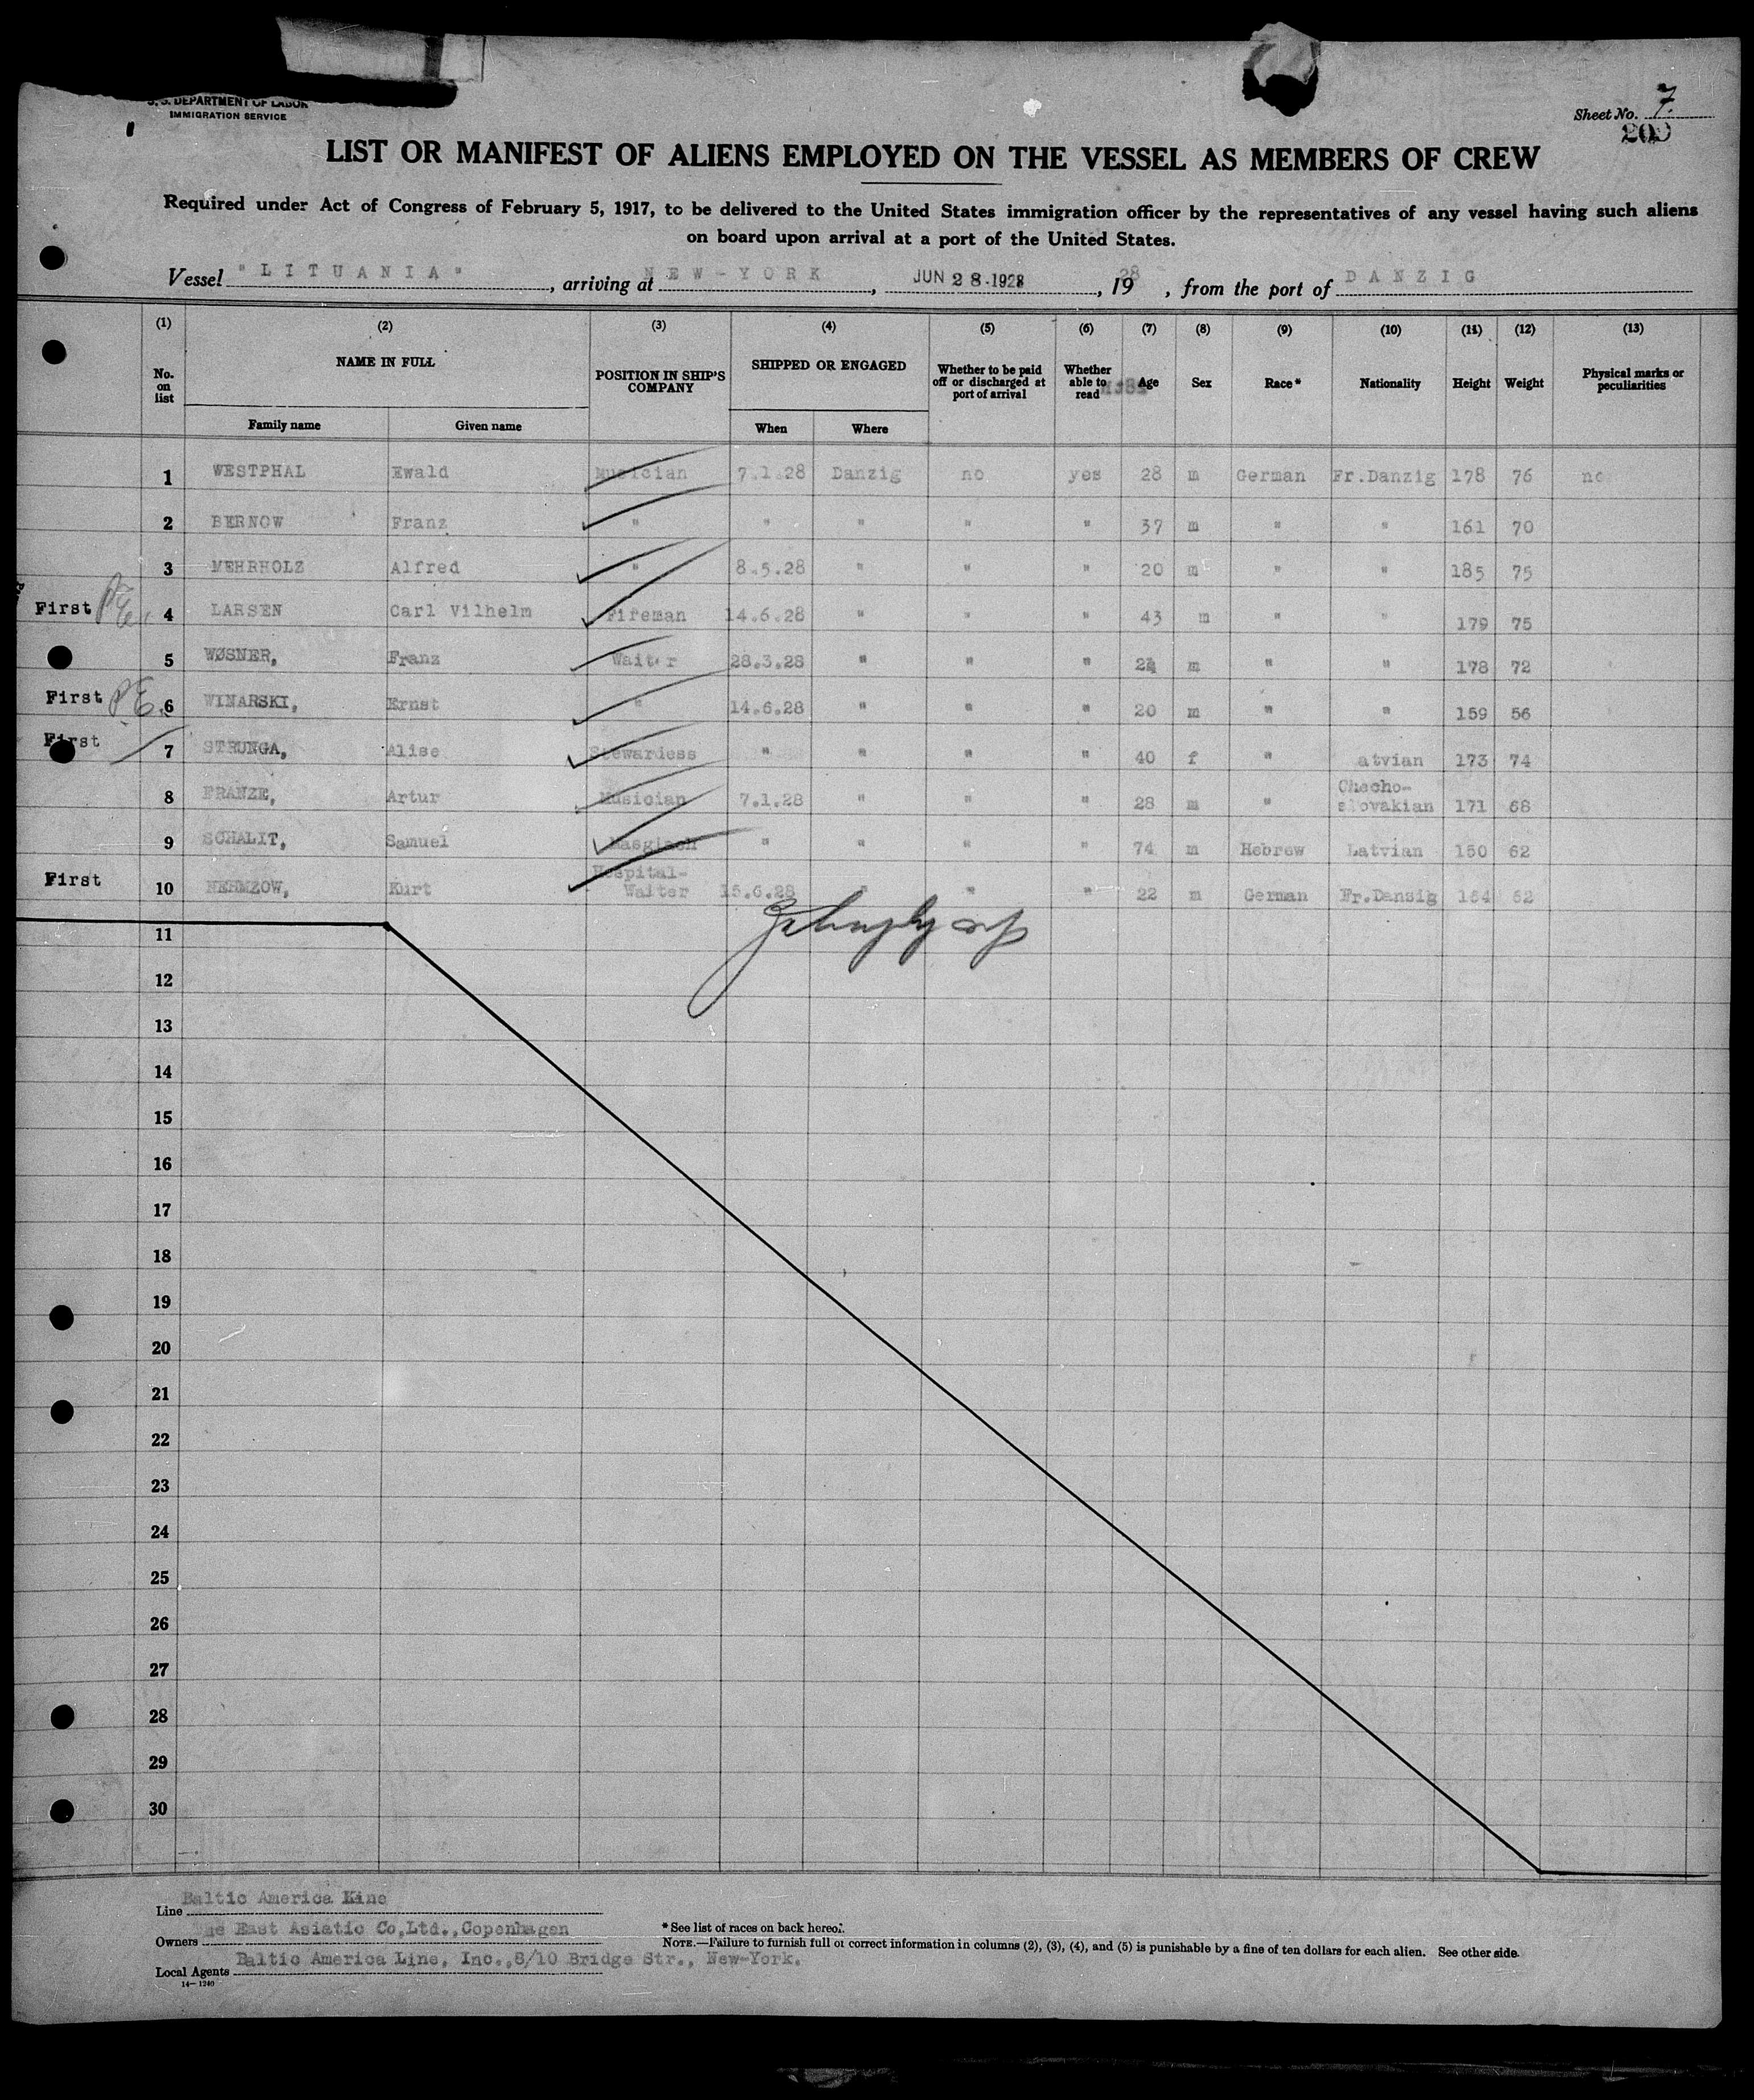 U. S. DEPARTMENT OF LABOR
IMMIGRATION SERVICE
Sheet No. 7.
209
LIST OR MANIFEST OF ALIENS EMPLOYED ON THE VESSEL AS MEMBERS OF CREW
Required under Act of Congress of February 5, 1917, to be delivered to the United States immigration officer by the representatives of any vessel having such aliens
on board upon arrival at a port of the United States.
Vessel "LITUANIA", arriving at NEW-YORK, JUN 28 1928, 1928, from the port of DANZIG
(1) (2) (3) (4) (5) (6) (7) (8) (9) (10) (11) (12) (13)
No. on list NAME IN FULL POSITION IN SHIP'S COMPANY SHIPPED OR ENGAGED Whether to be paid off or discharged at port of arrival Whether able to read Age Sex Race* Nationality Height Weight Physical marks or peculiarities
Family name Given name When Where
1 WESTPHAL Ewald Musician 7.1.28 Danzig no yes 28 m German Fr.Danzig 178 76 no
2 BERNOW Franz " " " " " 37 m " " 161 70
3 MEHRHOLZ Alfred " 8.5.28 " " " 20 m " " 185 75
First P.E. 4 LARSEN Carl Vilhelm Fireman 14.6.28 " " " 43 m " " 179 75
5 WØSNER, Franz Waiter 28.3.28 " " " 24 m " " 178 72
First P.E. 6 WINARSKI, Ernst " 14.6.28 " " " 20 m " " 159 56
First 7 STRUNGA, Alise Stewardess " " " " 40 f " atvian 173 74
8 FRANZE, Artur Musician 7.1.28 " " " 28 m " Checho-slovakian 171 68
9 SCHALIT, Samuel Masgiach " " " " 74 m Hebrew Latvian 150 62
First 10 NEHMZOW, Kurt Hospital-Waiter 15.6.28 " " " 22 m German Fr.Danzig 164 62
11
12
13
14
15
16
17
18
19
20
21
22
23
24
25
26
27
28
29
30
Line Baltic America Line
Owners The East Asiatic Co,Ltd.,Copenhagen
Local Agents Baltic America Line, Inc.,8/10 Bridge Str., New-York.
14—1240
* See list of races on back hereof.
NOTE.—Failure to furnish full or correct information in columns (2), (3), (4), and (5) is punishable by a fine of ten dollars for each alien. See other side.